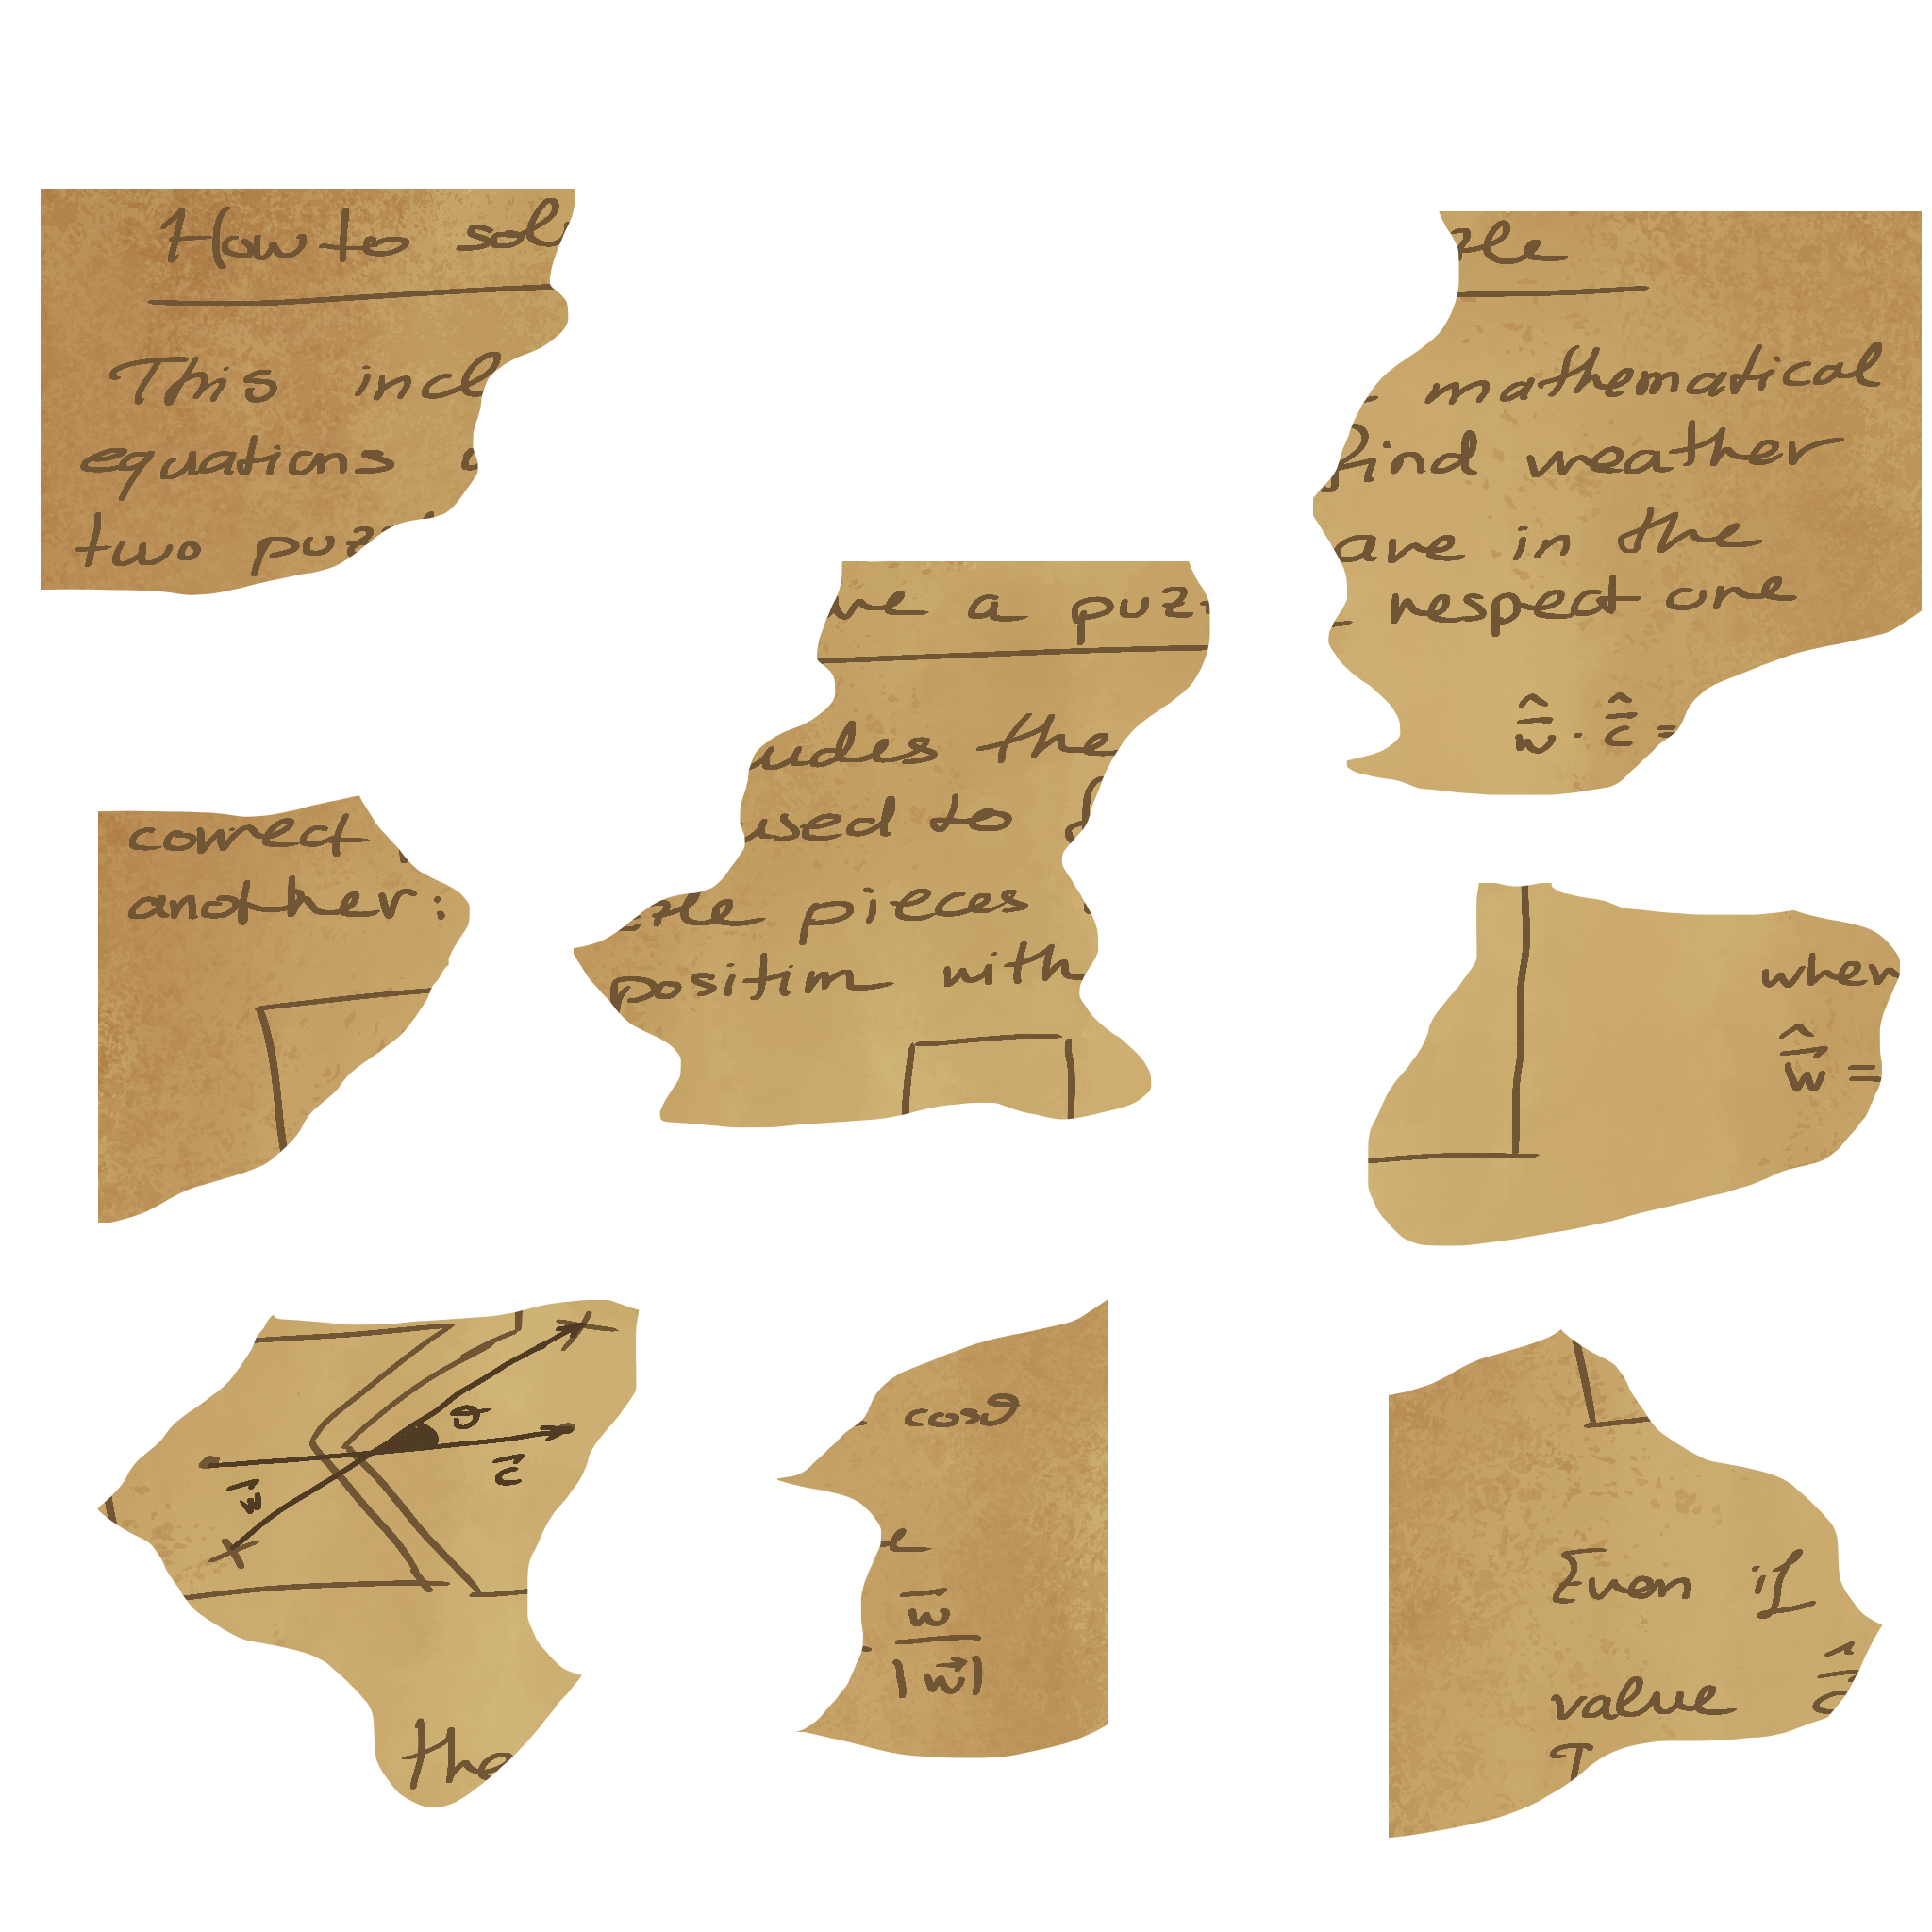 How to sol
This incl
equations
two puz
ve a puz
udes the
used to
zle pieces
positim with
zle
mathematical
find weather
are in the
respect one
ŵ · ĉ =
correct
another:
when
ŵ =
θ
w
c
the
cosθ
e
w
|w|
Even if
value c
T